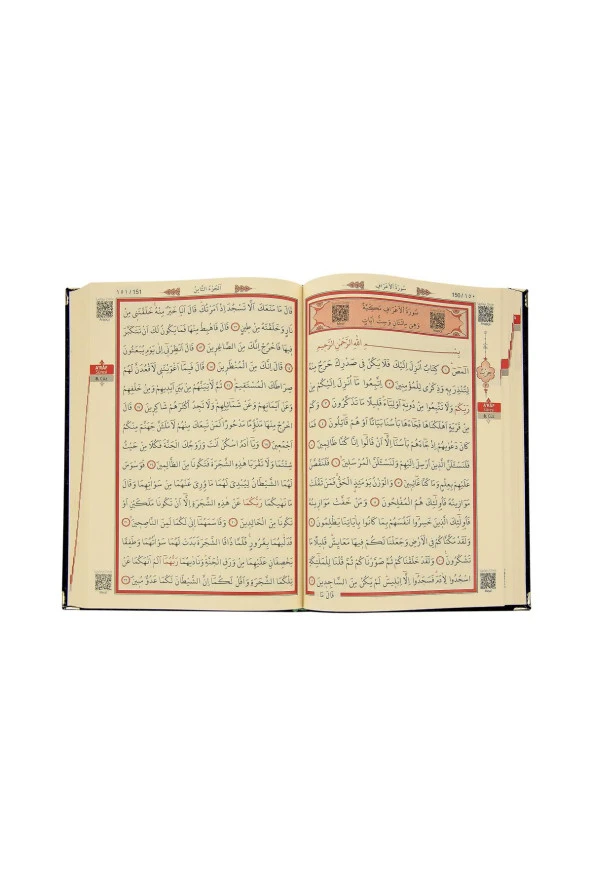 ١٥٠ / 150
سُورَةُ الْأَعْرَافِ
سُورَةُ الْأَعْرَافِ مَكِّيَّةٌ
وَهِيَ مِائَتَانِ وَسِتُّ اٰيَاتٍ
بِسْمِ اللّٰهِ الرَّحْمٰنِ الرَّحِيمِ
الٓمٓصٓ ﴿١﴾ كِتَابٌ اُنْزِلَ اِلَيْكَ فَلَا يَكُنْ فِى صَدْرِكَ حَرَجٌ مِنْهُ
لِتُنْذِرَ بِهِ وَذِكْرٰى لِلْمُؤْمِنِينَ ﴿٢﴾ اِتَّبِعُوا مَٓا اُنْزِلَ اِلَيْكُمْ مِنْ
رَبِّكُمْ وَلَا تَتَّبِعُوا مِنْ دُونِهِٓ اَوْلِيَٓاءَ قَلِيلًا مَا تَذَكَّرُونَ ﴿٣﴾ وَكَمْ
مِنْ قَرْيَةٍ اَهْلَكْنَاهَا فَجَٓاءَهَا بَأْسُنَا بَيَاتًا اَوْ هُمْ قَٓائِلُونَ ﴿٤﴾ فَمَا
كَانَ دَعْوٰيهُمْ اِذْ جَٓاءَهُمْ بَأْسُنَٓا اِلَّٓا اَنْ قَالُٓوا اِنَّا كُنَّا ظَالِمِينَ ﴿٥﴾
فَلَنَسْـَٔلَنَّ الَّذِينَ اُرْسِلَ اِلَيْهِمْ وَلَنَسْـَٔلَنَّ الْمُرْسَلِينَ ﴿٦﴾ فَلَنَقُصَّنَّ
عَلَيْهِمْ بِعِلْمٍ وَمَا كُنَّا غَٓائِبِينَ ﴿٧﴾ وَالْوَزْنُ يَوْمَئِذٍ الْحَقُّ فَمَنْ ثَقُلَتْ
مَوَازِينُهُ فَاُولٰٓئِكَ هُمُ الْمُفْلِحُونَ ﴿٨﴾ وَمَنْ خَفَّتْ مَوَازِينُهُ
فَاُولٰٓئِكَ الَّذِينَ خَسِرُٓوا اَنْفُسَهُمْ بِمَا كَانُوا بِاٰيَاتِنَا يَظْلِمُونَ ﴿٩﴾
وَلَقَدْ مَكَّنَّاكُمْ فِى الْاَرْضِ وَجَعَلْنَا لَكُمْ فِيهَا مَعَايِشَ قَلِيلًا مَا
تَشْكُرُونَ ﴿١٠﴾ وَلَقَدْ خَلَقْنَاكُمْ ثُمَّ صَوَّرْنَاكُمْ ثُمَّ قُلْنَا لِلْمَلٰٓئِكَةِ
اسْجُدُوا لِاٰدَمَ فَسَجَدُٓوا اِلَّٓا اِبْلِيسَ لَمْ يَكُنْ مِنَ السَّاجِدِينَ ﴿١١﴾
قَالَ مَا
A'RÂF
8. Cüz
اَلْجُزْءُ الثَّامِنُ
١٥١ / 151
قَالَ مَا مَنَعَكَ اَلَّا تَسْجُدَ اِذْ اَمَرْتُكَ قَالَ اَنَا خَيْرٌ مِنْهُ خَلَقْتَنِى مِنْ
نَارٍ وَخَلَقْتَهُ مِنْ طِينٍ ﴿١٢﴾ قَالَ فَاهْبِطْ مِنْهَا فَمَا يَكُونُ لَكَ اَنْ تَتَكَبَّرَ
فِيهَا فَاخْرُجْ اِنَّكَ مِنَ الصَّاغِرِينَ ﴿١٣﴾ قَالَ اَنْظِرْنِٓى اِلٰى يَوْمِ يُبْعَثُونَ
﴿١٤﴾ قَالَ اِنَّكَ مِنَ الْمُنْظَرِينَ ﴿١٥﴾ قَالَ فَبِمَٓا اَغْوَيْتَنِى لَاَقْعُدَنَّ لَهُمْ
صِرَاطَكَ الْمُسْتَقِيمَ ﴿١٦﴾ ثُمَّ لَاٰتِيَنَّهُمْ مِنْ بَيْنِ اَيْدِيهِمْ وَمِنْ خَلْفِهِمْ
وَعَنْ اَيْمَانِهِمْ وَعَنْ شَمَٓائِلِهِمْ وَلَا تَجِدُ اَكْثَرَهُمْ شَاكِرِينَ ﴿١٧﴾ قَالَ
اخْرُجْ مِنْهَا مَذْؤُمًا مَدْحُورًا لَمَنْ تَبِعَكَ مِنْهُمْ لَاَمْلَـَٔنَّ جَهَنَّمَ مِنْكُمْ
اَجْمَعِينَ ﴿١٨﴾ وَيَٓا اٰدَمُ اسْكُنْ اَنْتَ وَزَوْجُكَ الْجَنَّةَ فَكُلَا مِنْ حَيْثُ
شِئْتُمَا وَلَا تَقْرَبَا هٰذِهِ الشَّجَرَةَ فَتَكُونَا مِنَ الظَّالِمِينَ ﴿١٩﴾ فَوَسْوَسَ
لَهُمَا الشَّيْطَانُ لِيُبْدِىَ لَهُمَا مَا وُ۫رِىَ عَنْهُمَا مِنْ سَوْاٰتِهِمَا وَقَالَ
مَا نَهٰيكُمَا رَبُّكُمَا عَنْ هٰذِهِ الشَّجَرَةِ اِلَّٓا اَنْ تَكُونَا مَلَكَيْنِ اَوْ
تَكُونَا مِنَ الْخَالِدِينَ ﴿٢٠﴾ وَقَاسَمَهُمَٓا اِنِّى لَكُمَا لَمِنَ النَّاصِحِينَ ﴿٢١﴾
فَدَلّٰيهُمَا بِغُرُورٍ فَلَمَّا ذَاقَا الشَّجَرَةَ بَدَتْ لَهُمَا سَوْاٰتُهُمَا وَطَفِقَا
يَخْصِفَانِ عَلَيْهِمَا مِنْ وَرَقِ الْجَنَّةِ وَنَادٰيهُمَا رَبُّهُمَٓا اَلَمْ اَنْهَكُمَا عَنْ
تِلْكُمَا الشَّجَرَةِ وَاَقُلْ لَكُمَٓا اِنَّ الشَّيْطَانَ لَكُمَا عَدُوٌّ مُبِينٌ ﴿٢٢﴾
A'RÂF
8. Cüz